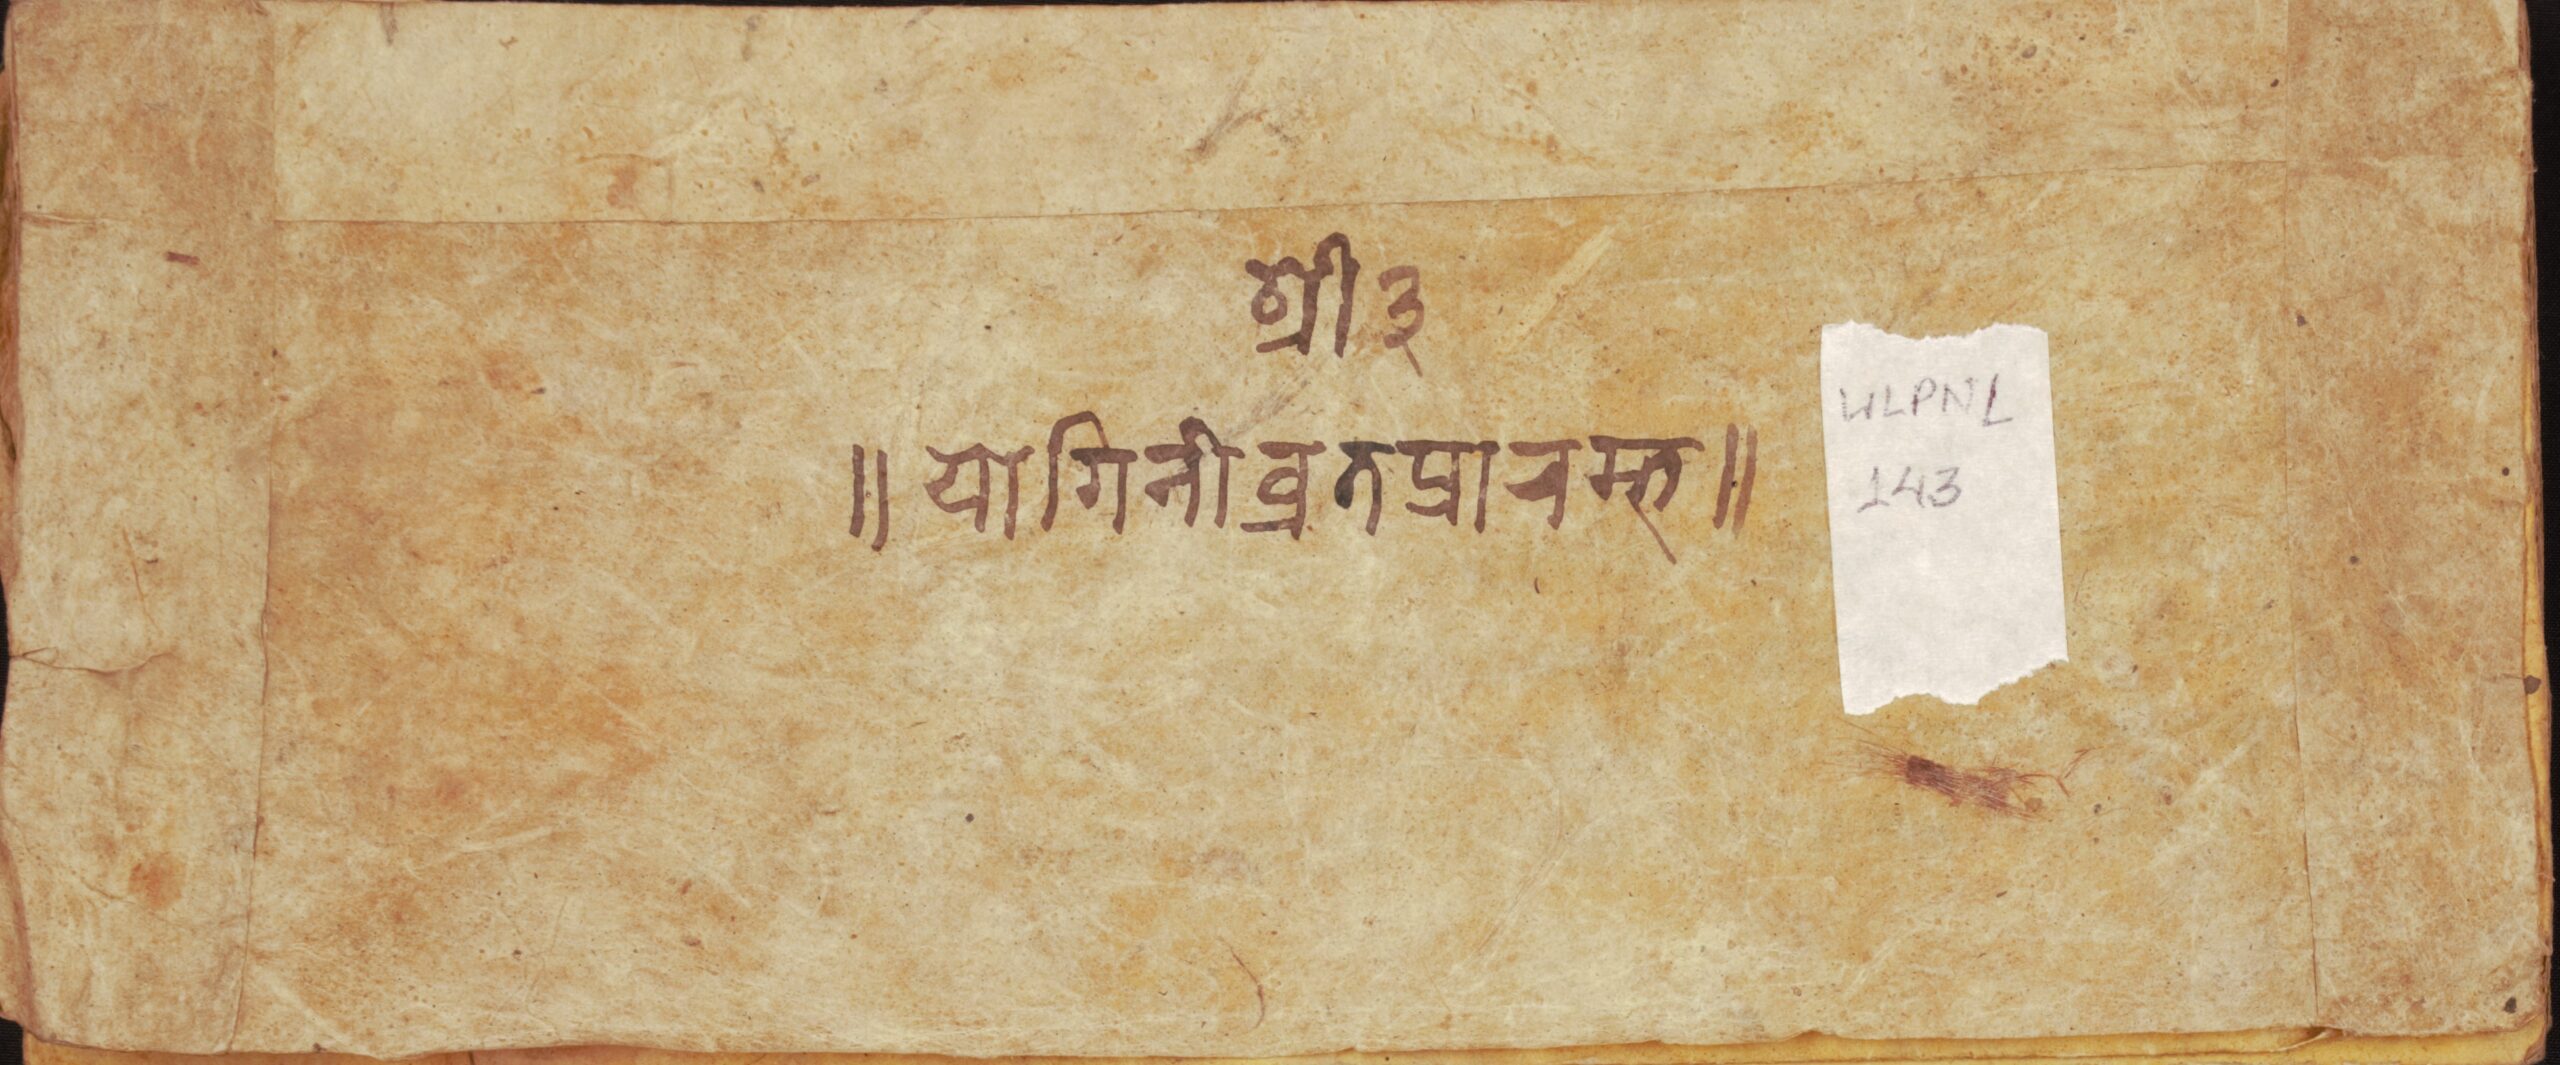 श्री ३
॥ यागिनीव्रतप्रारम्भ ॥
WLPNL
143